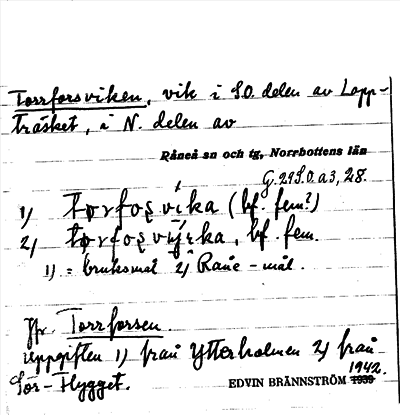 Torrforsviken, vik i S.O. delen av Lapp-
träsket, i N. delen av
Råneå sn och tg, Norrbottens län
G. 29 S.O. a 3, 28.
1) tørfoșvíka (bf. fem?)
2) tørfoșvyịka, bf. fem.
1) = bruksmål 2) Råne-mål.
Jfr. Torrforsen.
Uppgiften 1) från Ytterholmen 2) från
Sör-Flygget. 1942.
EDVIN BRÄNNSTRÖM 1939